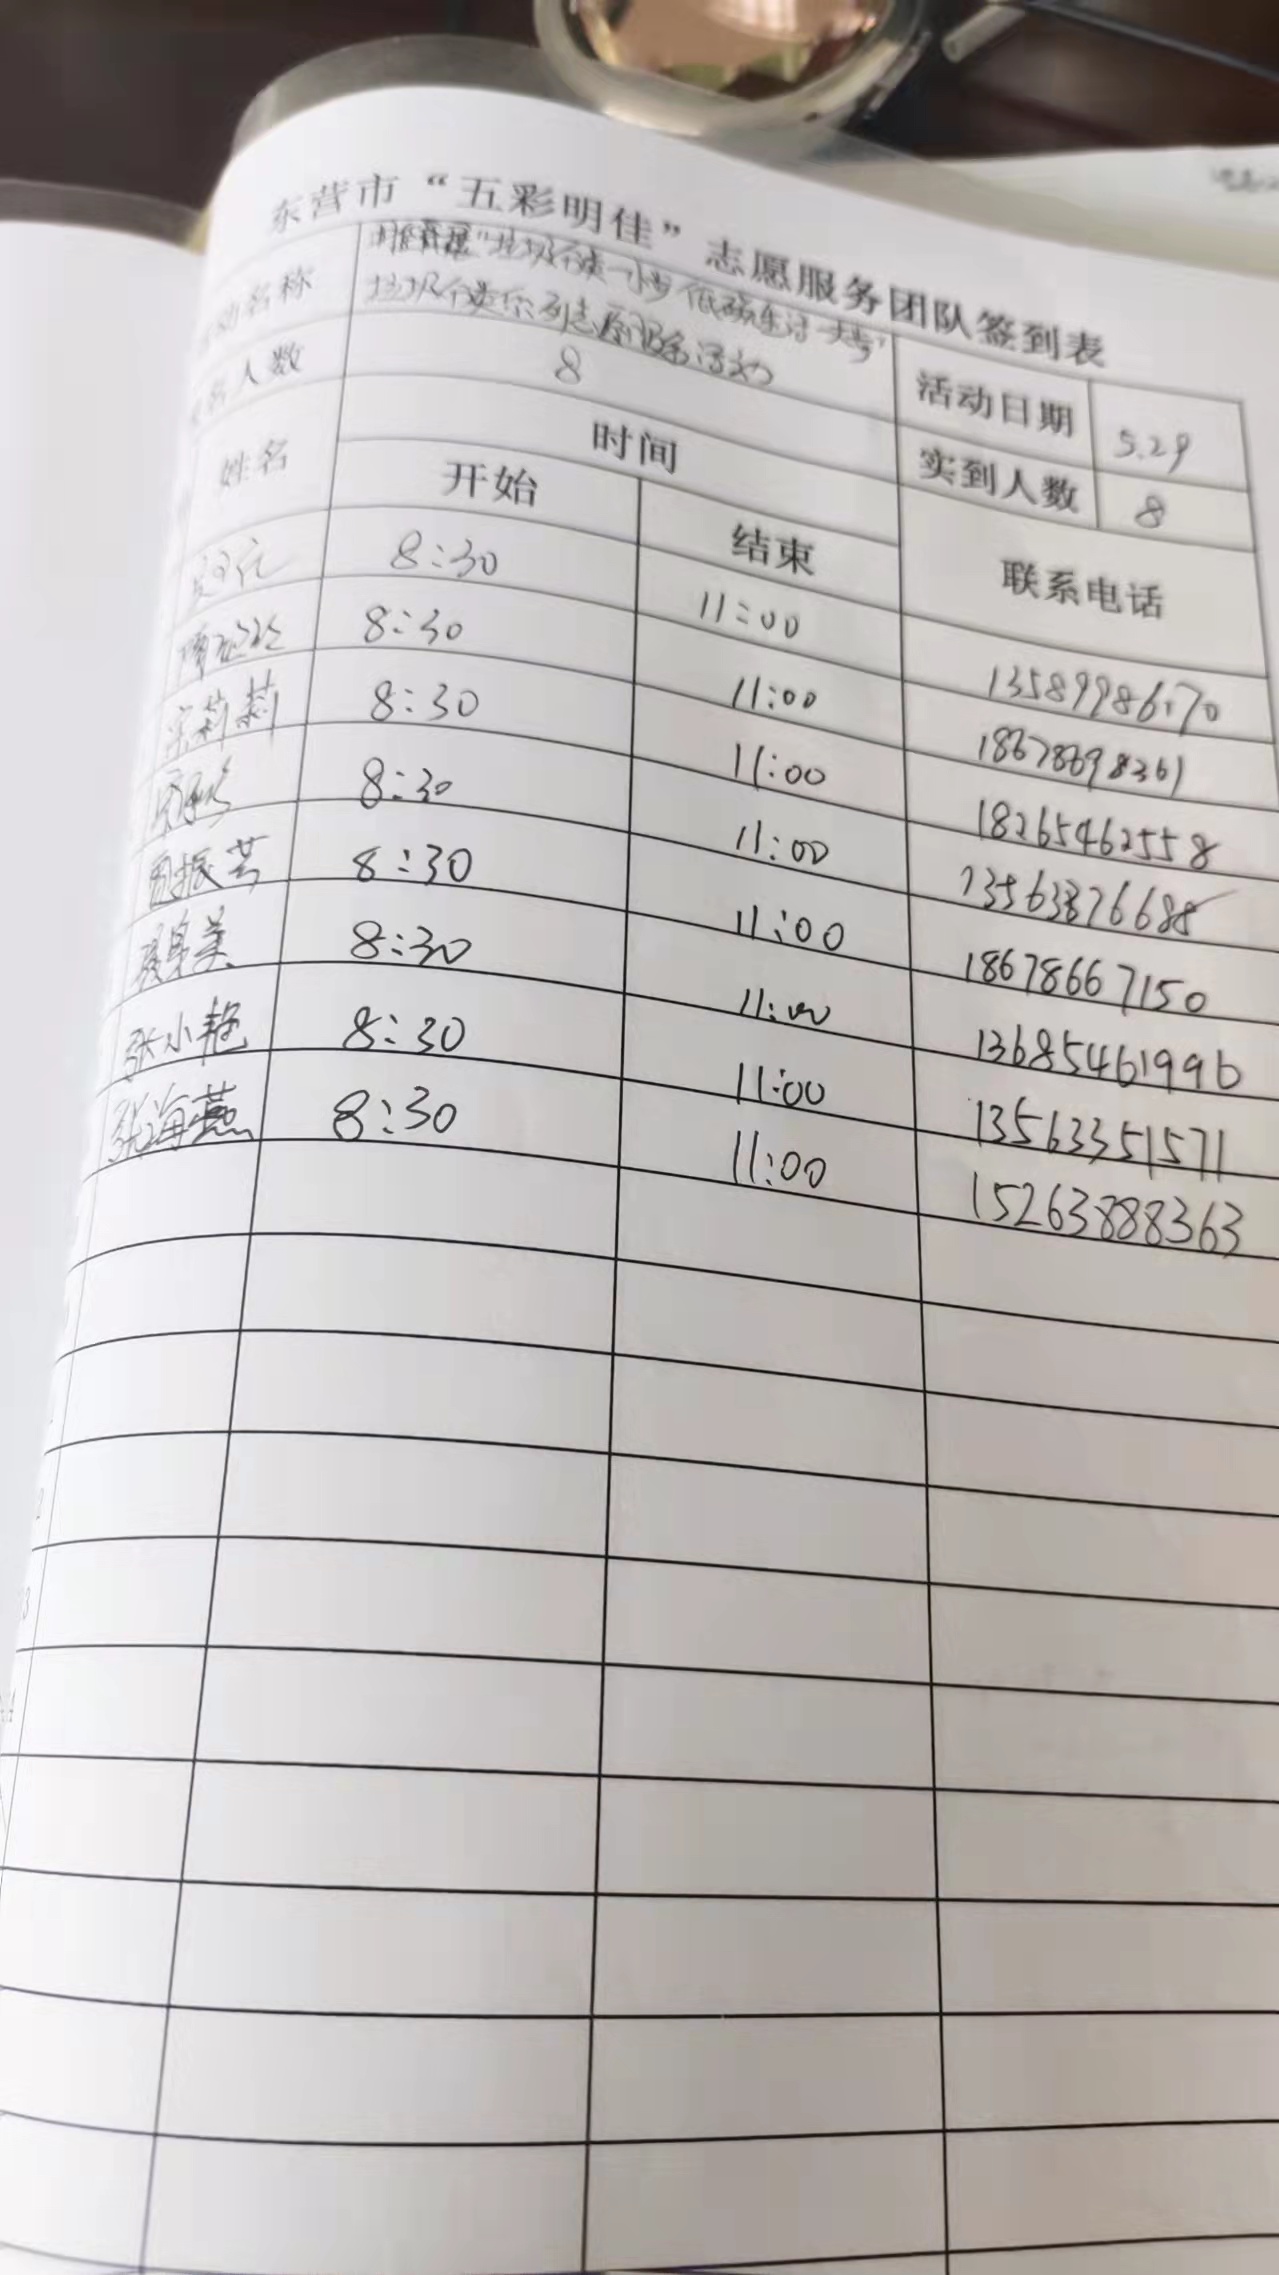 东营市“五彩明佳”志愿服务团队签到表
动名称 “垃圾分类一小步 低碳生活一大步”
垃圾分类系列志愿服务活动
活动日期 5.29
人数 8 实到人数 8
姓名 时间 联系电话
开始 结束
8:30 11:00
8:30 11:00 18678698361
莉莉 8:30 11:00 18265462558
8:30 11:00 13563876688
周振芸 8:30 11:00 18678667150
美 8:30 11:00 13685461996
张小艳 8:30 11:00 13563351571
张海燕 8:30 11:00 15263888363